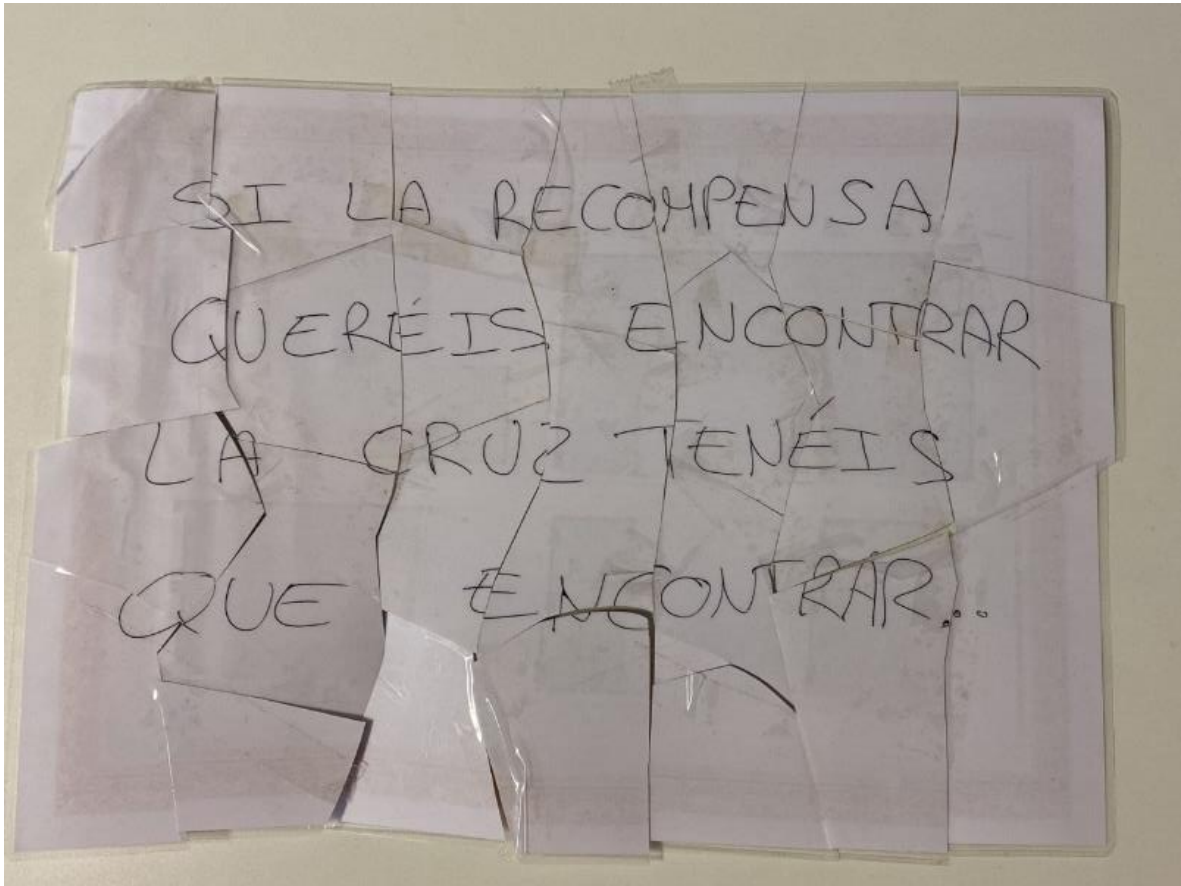 SI LA RECOMPENSA
QUERÉIS ENCONTRAR
LA CRUZ TENÉIS
QUE ENCONTRAR...